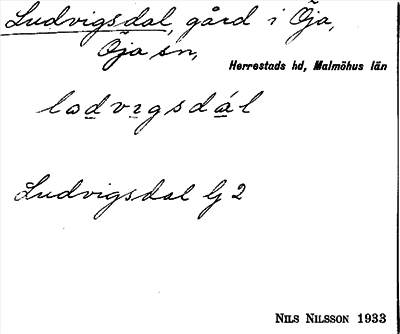 Ludvigsdal, gård i Öja,
Öja sn,
Herrestads hd, Malmöhus län
lodvigsdál
Ludvigsdal Gj 2
NILS NILSSON 1933